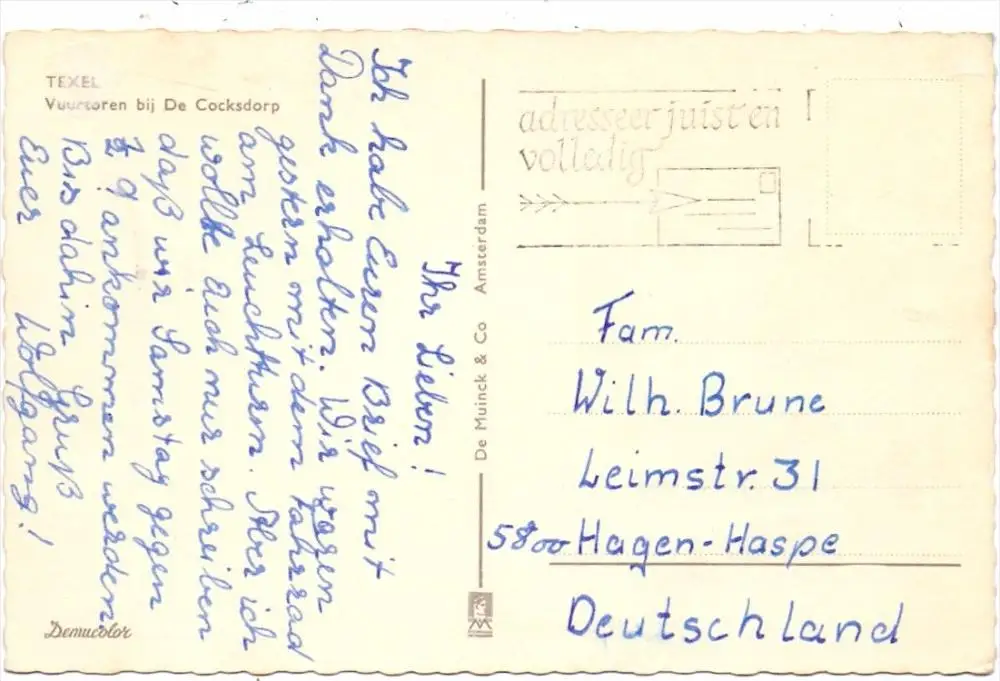 TEXEL
Vuurtoren bij De Cocksdorp
Ihr Lieben!
Ich habe Euren Brief mit
Dank erhalten. Wir waren
gestern mit dem Fahrrad
am Leuchtturm. Aber ich
wollte Euch nur schreiben
daß wir Samstag gegen
9 ankommen werden.
Bis dahin Gruß
Euer Wolfgang!
Demucolor
De Muinck & Co Amsterdam
adresseer juist en
volledig
Fam.
Wilh. Brune
Leimstr. 31
5800 Hagen-Haspe
Deutschland